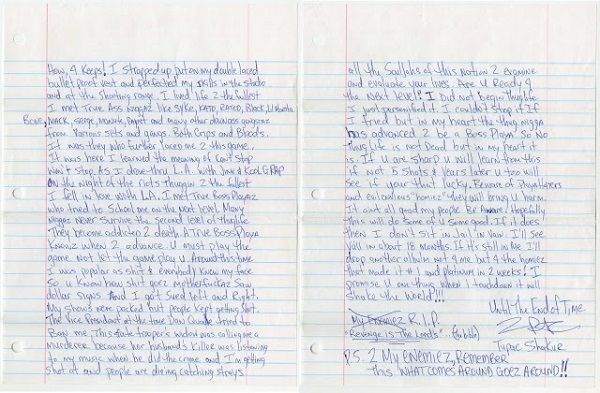 Now, 4 Keeps! I strapped up put on my double laced
bullet proof vest and perfected my skills in the studio
and at the shooting range. I lived life 2 the fullest
I met True Ass Niggaz like Syke, Kato, Rated, Black,
Bone, Mack, Serge, Monsta, and many other down ass gangstas
from Various sets and gangs. Both Crips and Bloods.
It was they who further laced me 2 this game.
It was here I learned the meaning of Can't Stop
Won't Stop As I drove thru L.A. with and Kool G Rap
on the night of the riots Thuggin 2 the fullest
I fell in love with L.A. I met True Boss Playaz
who tried to School me on the next level Many
Niggaz Never Survive the Second level of Thuglife
They become addicted 2 death. A True Boss Playa
Knowz when 2 advance. U must play the
game not let the game play U Around this time
I was popular as shit & everybody knew my face
So U know how shit goez motherfuckaz saw
dollar signs And I got Sued left and Right.
My shows were packed but people kept getting Shot.
The Vice President at the time Dan Quayle tried to
Ban me. This state trooper's widow was calling me a
murderer because her husband's killer was listening
to my music when he did the crime and I'm getting
shot at and people are diving catching strays
all the Souljahs of this Nation 2 examine
and evaluate your lives. Are U Ready 4
the Next level? I Did not begin Thuglife
I just personified it. I couldn't stop it If
I tried but in my heart the thug nigga
has advanced 2 be a Boss Playa So No
Thug life is not Dead but in my heart it
is. If U are sharp U will learn from this
if not 5 shots & Years later U too will
see if your that lucky. Beware of Playa Haters
and evil envious "homiez" they will bring U harm.
It aint all good my people Be Aware! Hopefully
this will do Some of U some good. If it does
then I don't sit in Jail in Vain. I'll See
Yall in about 18 months. If It's still on Me I'll
drop another album not 4 me but 4 the homiez
that made it #1 and platinum in 2 weeks! I
promise U one thing when I touchdown it will
Shake the World!!!
Until The End of Time
My Enemiez R.I.P.
"Revenge is The Lords" (bible)
Tupac Shakur
P.S. 2 My Enemiez, Remember
this WHAT COMES AROUND GOEZ AROUND!!